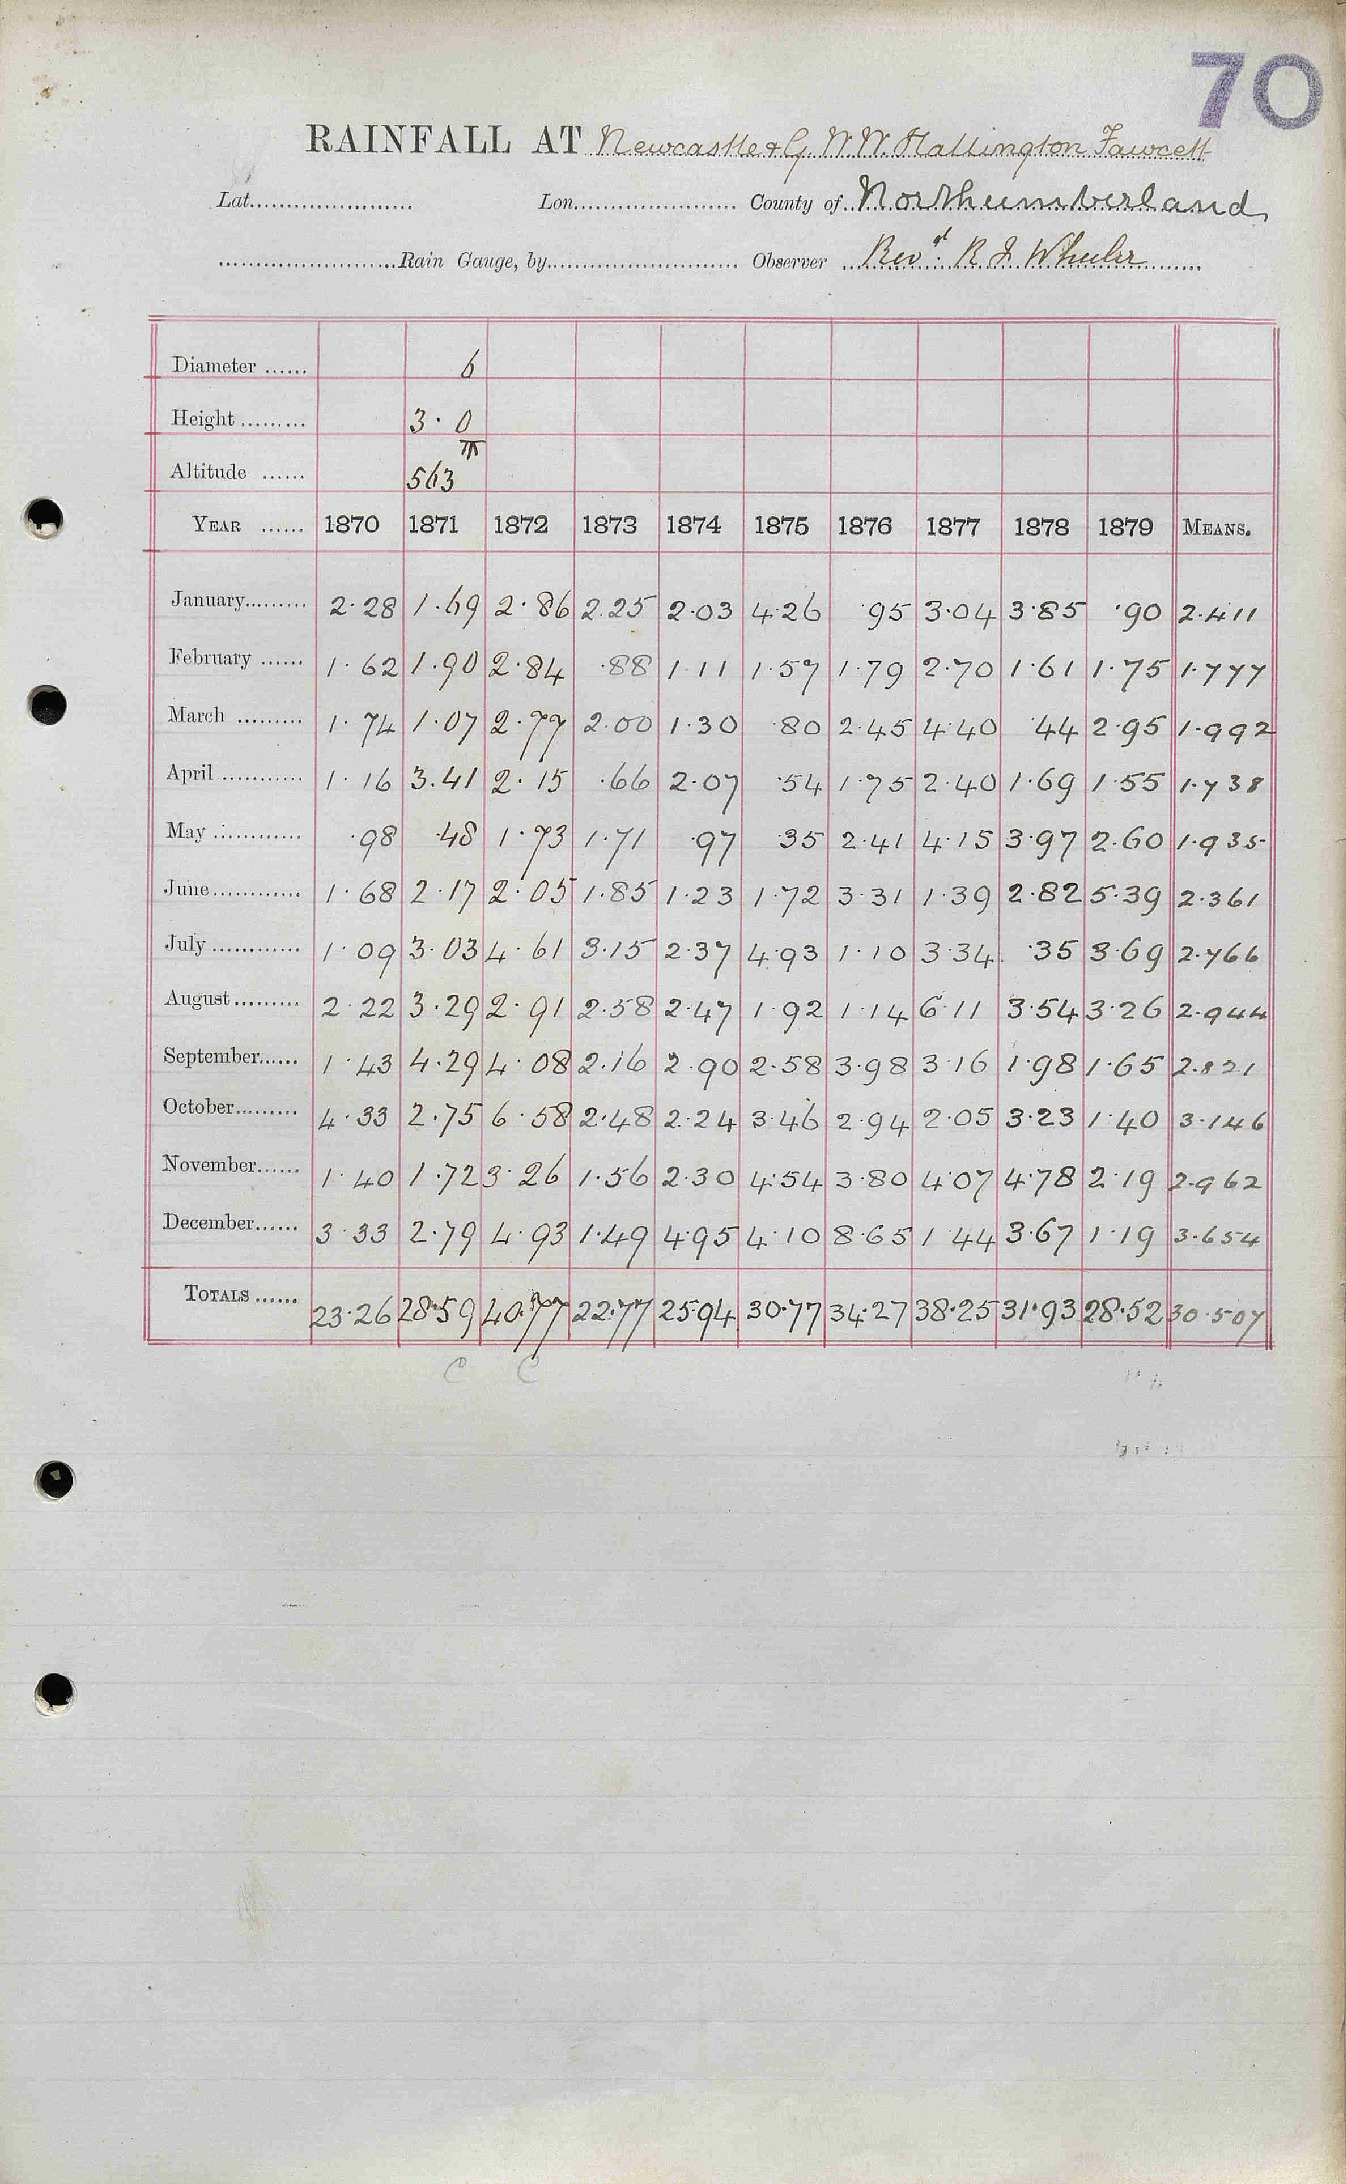 70
RAINFALL AT Newcastle & G. W.W. Hallington Fawcett
Lat. Lon. County of Northumberland
Rain Gauge, by Observer Revd. R J Wheeler
Diameter 6
Height 3.0
Altitude 563
YEAR 1870 1871 1872 1873 1874 1875 1876 1877 1878 1879 MEANS.
January 2.28 1.69 2.86 2.25 2.03 4.26 .95 3.04 3.85 .90 2.411
February 1.62 1.90 2.84 .88 1.11 1.57 1.79 2.70 1.61 1.75 1.777
March 1.74 1.07 2.77 2.00 1.30 .80 2.45 4.40 .44 2.95 1.992
April 1.16 3.41 2.15 .66 2.07 .54 1.75 2.40 1.69 1.55 1.738
May .98 .48 1.73 1.71 .97 .35 2.41 4.15 3.97 2.60 1.935
June 1.68 2.17 2.05 1.85 1.23 1.72 3.31 1.39 2.82 5.39 2.361
July 1.09 3.03 4.61 3.15 2.37 4.93 1.10 3.34 .35 3.69 2.766
August 2.22 3.29 2.91 2.58 2.47 1.92 1.14 6.11 3.54 3.26 2.944
September 1.43 4.29 4.08 2.16 2.90 2.58 3.98 3.16 1.98 1.65 2.821
October 4.33 2.75 6.58 2.48 2.24 3.46 2.94 2.05 3.23 1.40 3.146
November 1.40 1.72 3.26 1.56 2.30 4.54 3.80 4.07 4.78 2.19 2.962
December 3.33 2.79 4.93 1.49 4.95 4.10 8.65 1.44 3.67 1.19 3.654
TOTALS 23.26 28.59 40.77 22.77 25.94 30.77 34.27 38.25 31.93 28.52 30.507
C C